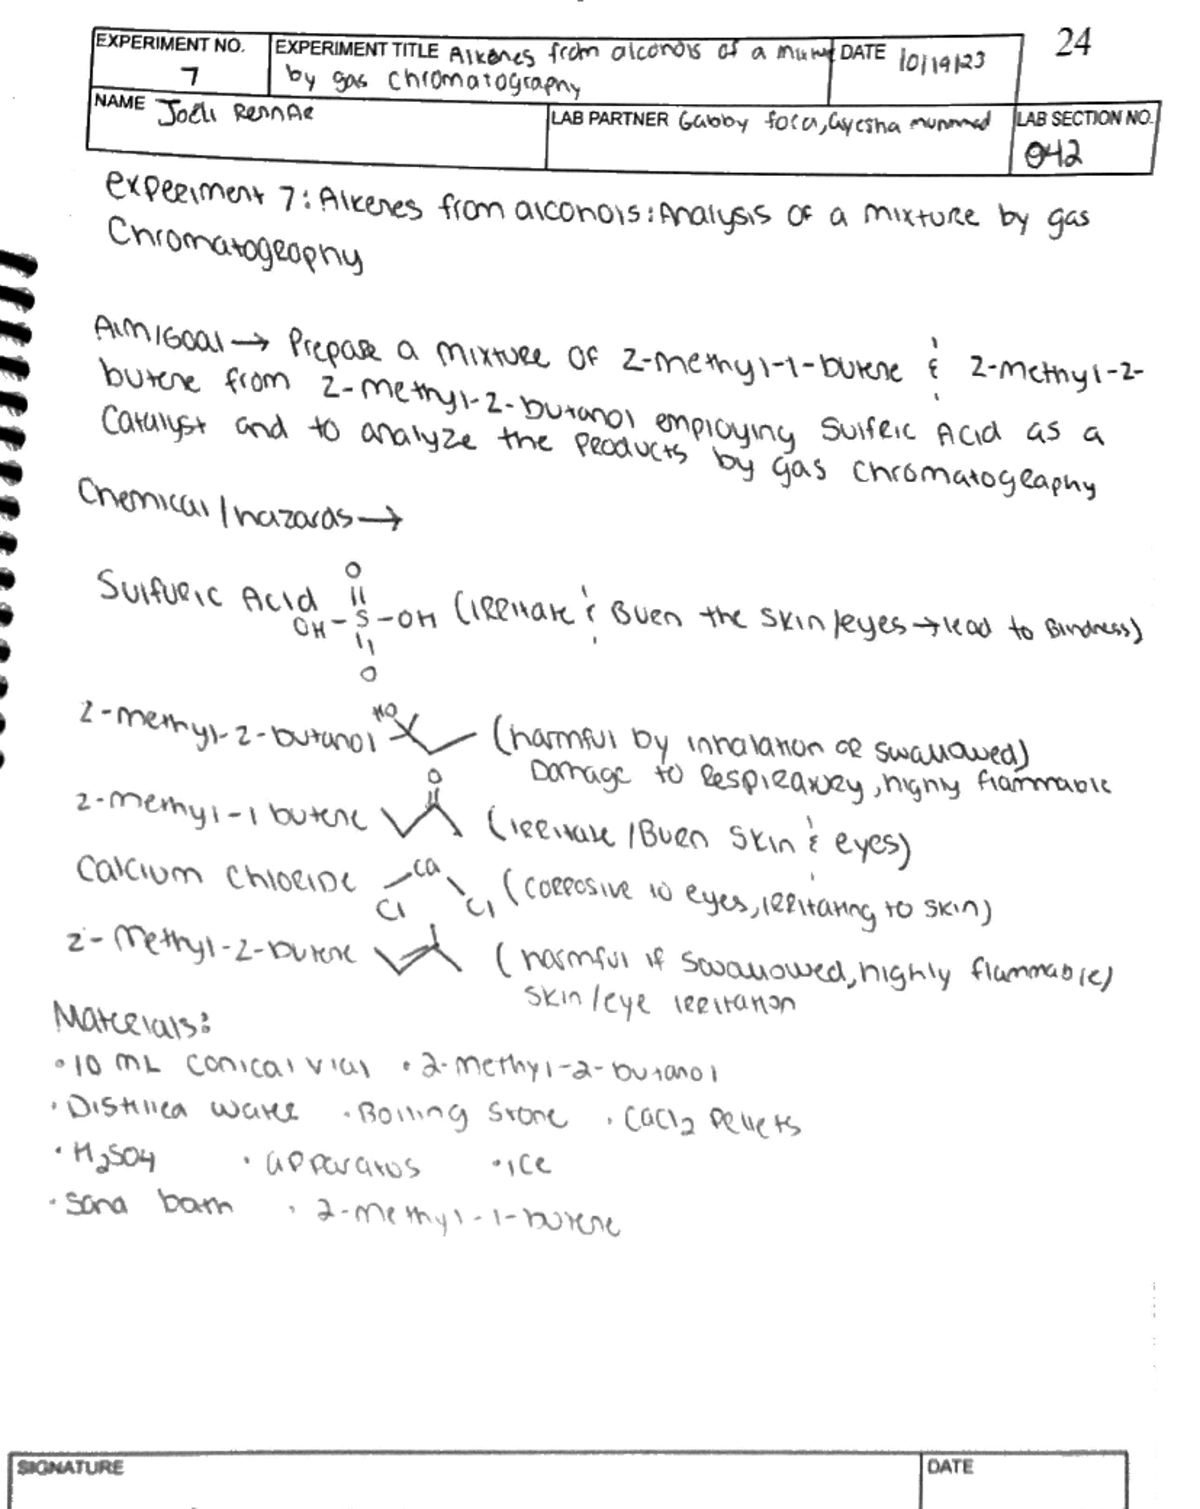 24
EXPERIMENT NO.
7
EXPERIMENT TITLE Alkenes from alcohols of a
by gas chromatography
DATE 10/19/23
NAME Joeli Rennae
LAB PARTNER Gabby
LAB SECTION NO.
042
Experiment 7: Alkenes from alcohols: Analysis of a mixture by gas
Chromatography
Aim/Goal → Prepare a mixture of 2-methyl-1-butene & 2-methyl-2-
butene from 2-methyl-2-butanol employing Sulferic Acid as a
Catalyst and to analyze the products by gas chromatography
Chemical/hazards →
O
Sulfuric Acid OH-S-OH (irritate & Burn the skin/eyes → lead to Blindness)
O
2-methyl-2-butanol HO (harmful by inhalation or swallowed)
Damage to Respiratory, highly flammable
O
2-methyl-1 butene (irritate/Burn skin & eyes)
Calcium Chloride Ca Cl Cl (corrosive to eyes, irritating to skin)
2-methyl-2-butene (harmful if swallowed, highly flammable)
skin/eye irritation
Materials:
• 10 mL conical vial • 2-methyl-2-butanol
• Distilled water • Boiling stone • CaCl2 Pellets
• H2SO4 • apparatus • ice
• Sand bath • 2-methyl-1-butene
SIGNATURE
DATE